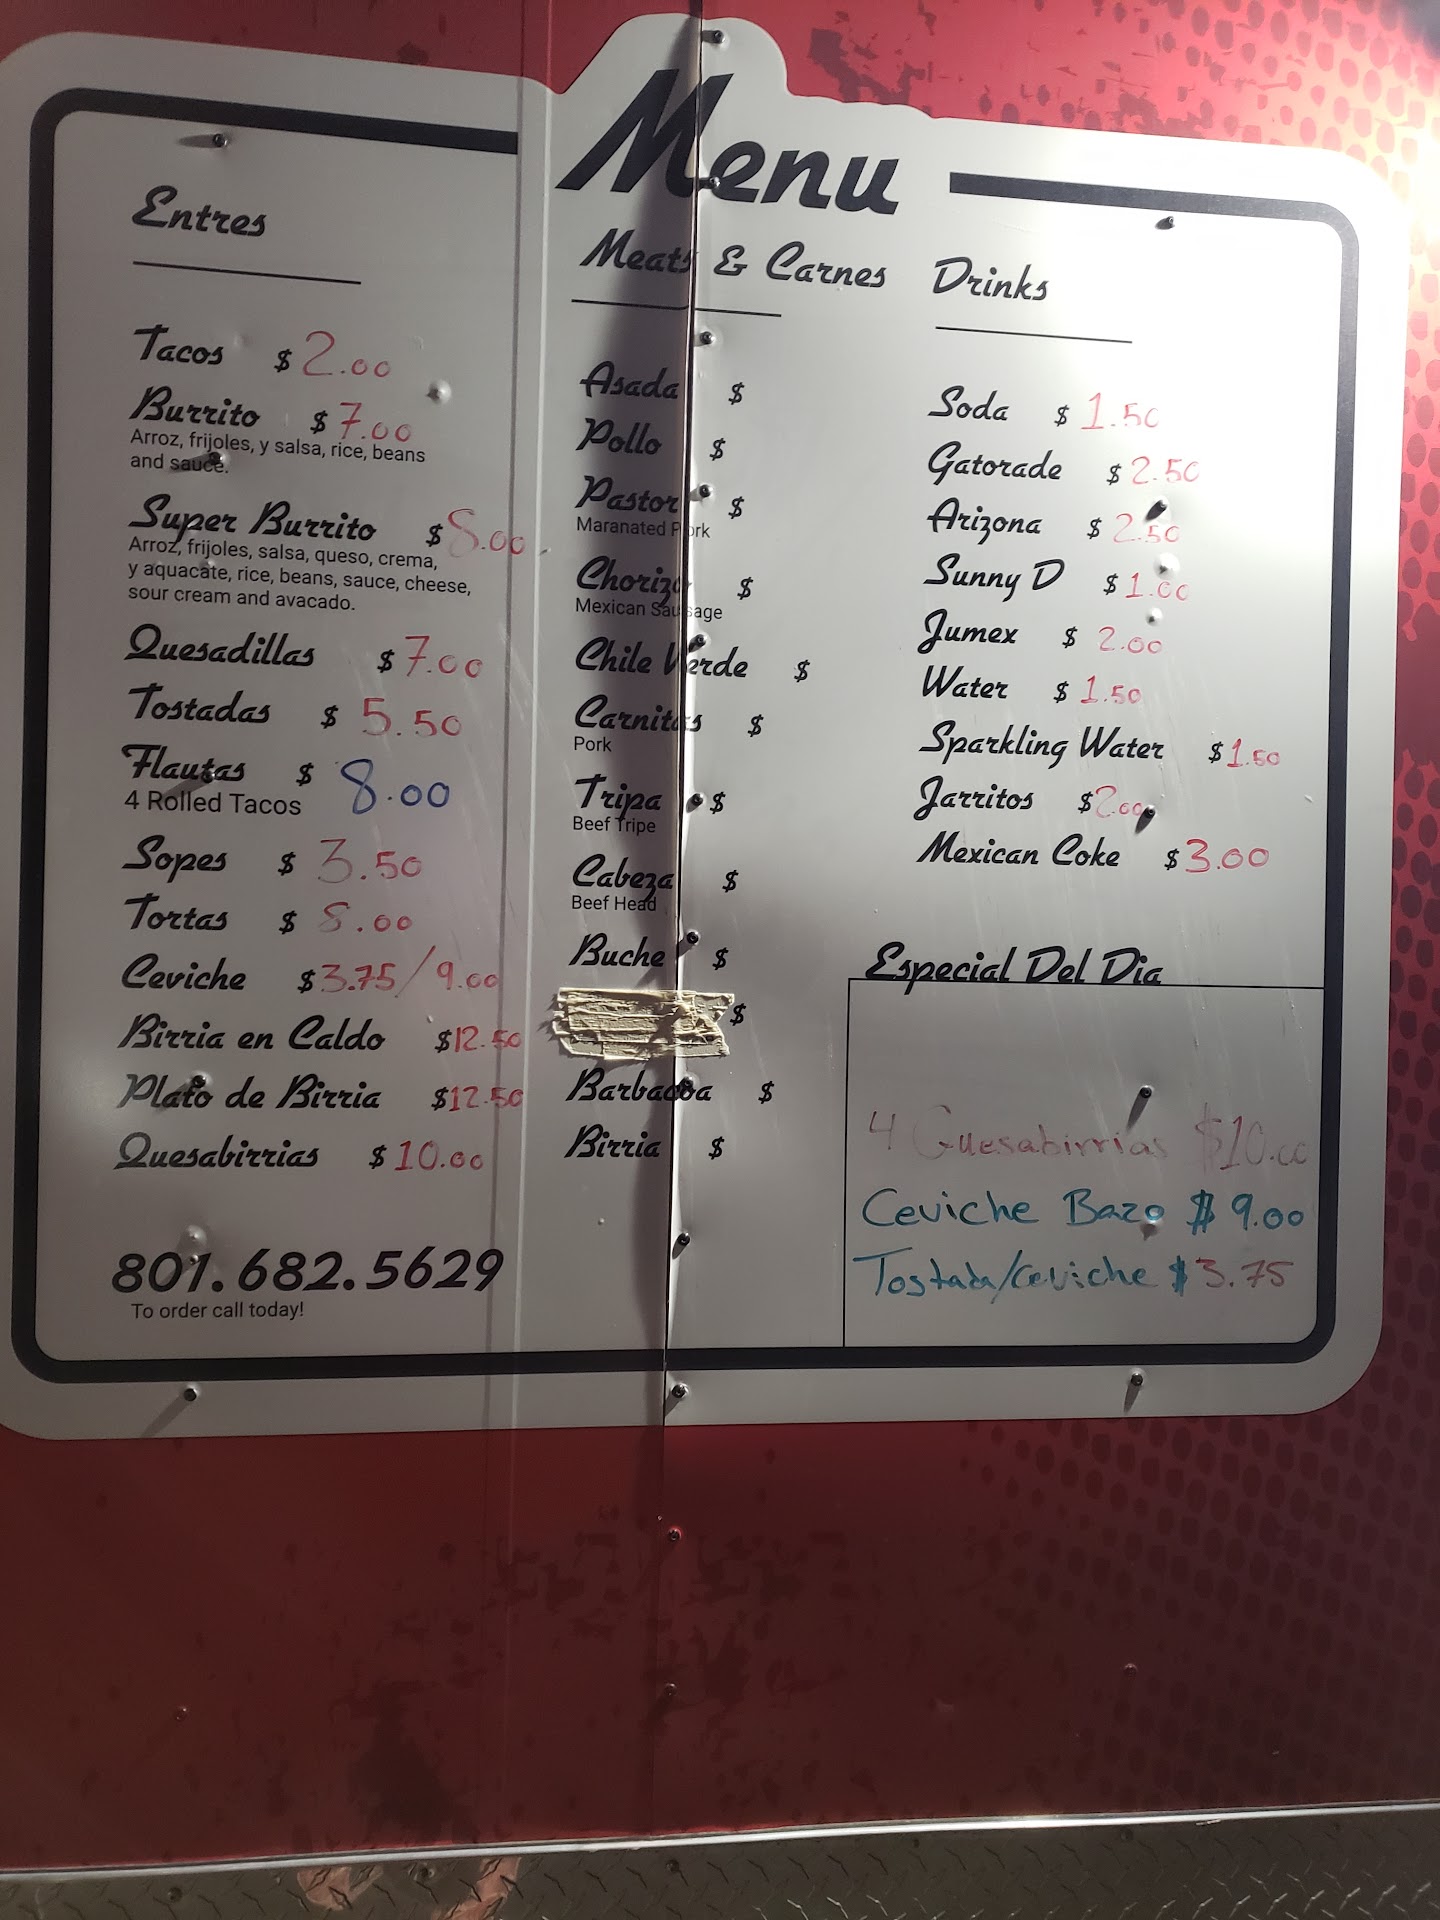 Menu
Entres
Tacos $ 2.00
Burrito $ 7.00
Arroz, frijoles, y salsa, rice, beans
and sauce.
Super Burrito $ 8.00
Arroz, frijoles, salsa, queso, crema,
y aquacate, rice, beans, sauce, cheese,
sour cream and avacado.
Quesadillas $ 7.00
Tostadas $ 5.50
Flautas $ 8.00
4 Rolled Tacos
Sopes $ 3.50
Tortas $ 8.00
Ceviche $ 3.75/9.00
Birria en Caldo $12.50
Plato de Birria $12.50
Quesabirrias $ 10.00
801.682.5629
To order call today!
Meats & Carnes
Asada $
Pollo $
Pastor $
Maranated Pork
Chorizo $
Mexican Sausage
Chile Verde $
Carnitas $
Pork
Tripa $
Beef Tripe
Cabeza $
Beef Head
Buche $
$
Barbacoa $
Birria $
Drinks
Soda $ 1.50
Gatorade $ 2.50
Arizona $ 2.50
Sunny D $ 1.00
Jumex $ 2.00
Water $ 1.50
Sparkling Water $1.50
Jarritos $2.00
Mexican Coke $3.00
Especial Del Dia
4 Quesabirrias $10.00
Ceviche Bazo $ 9.00
Tostada/Ceviche $ 3.75